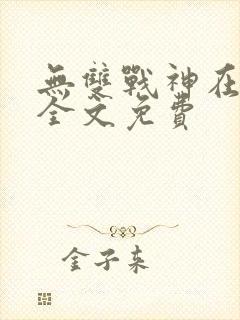 無雙戰神在
全文免費
金子来